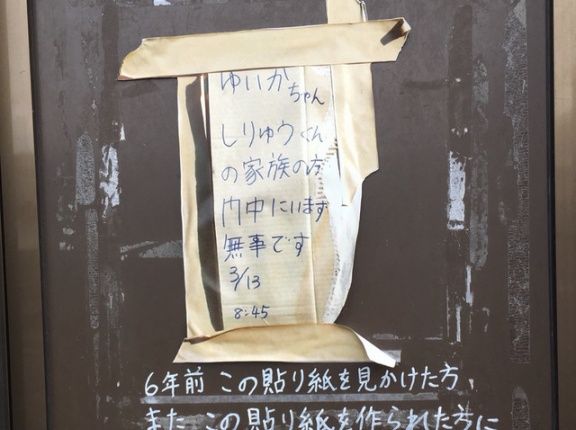 ゆいかちゃん
しりゅうくん
の家族の方
門中にいます
無事です
3/13
8:45
6年前 この貼り紙を見かけた方
また この貼り紙を作られた方に